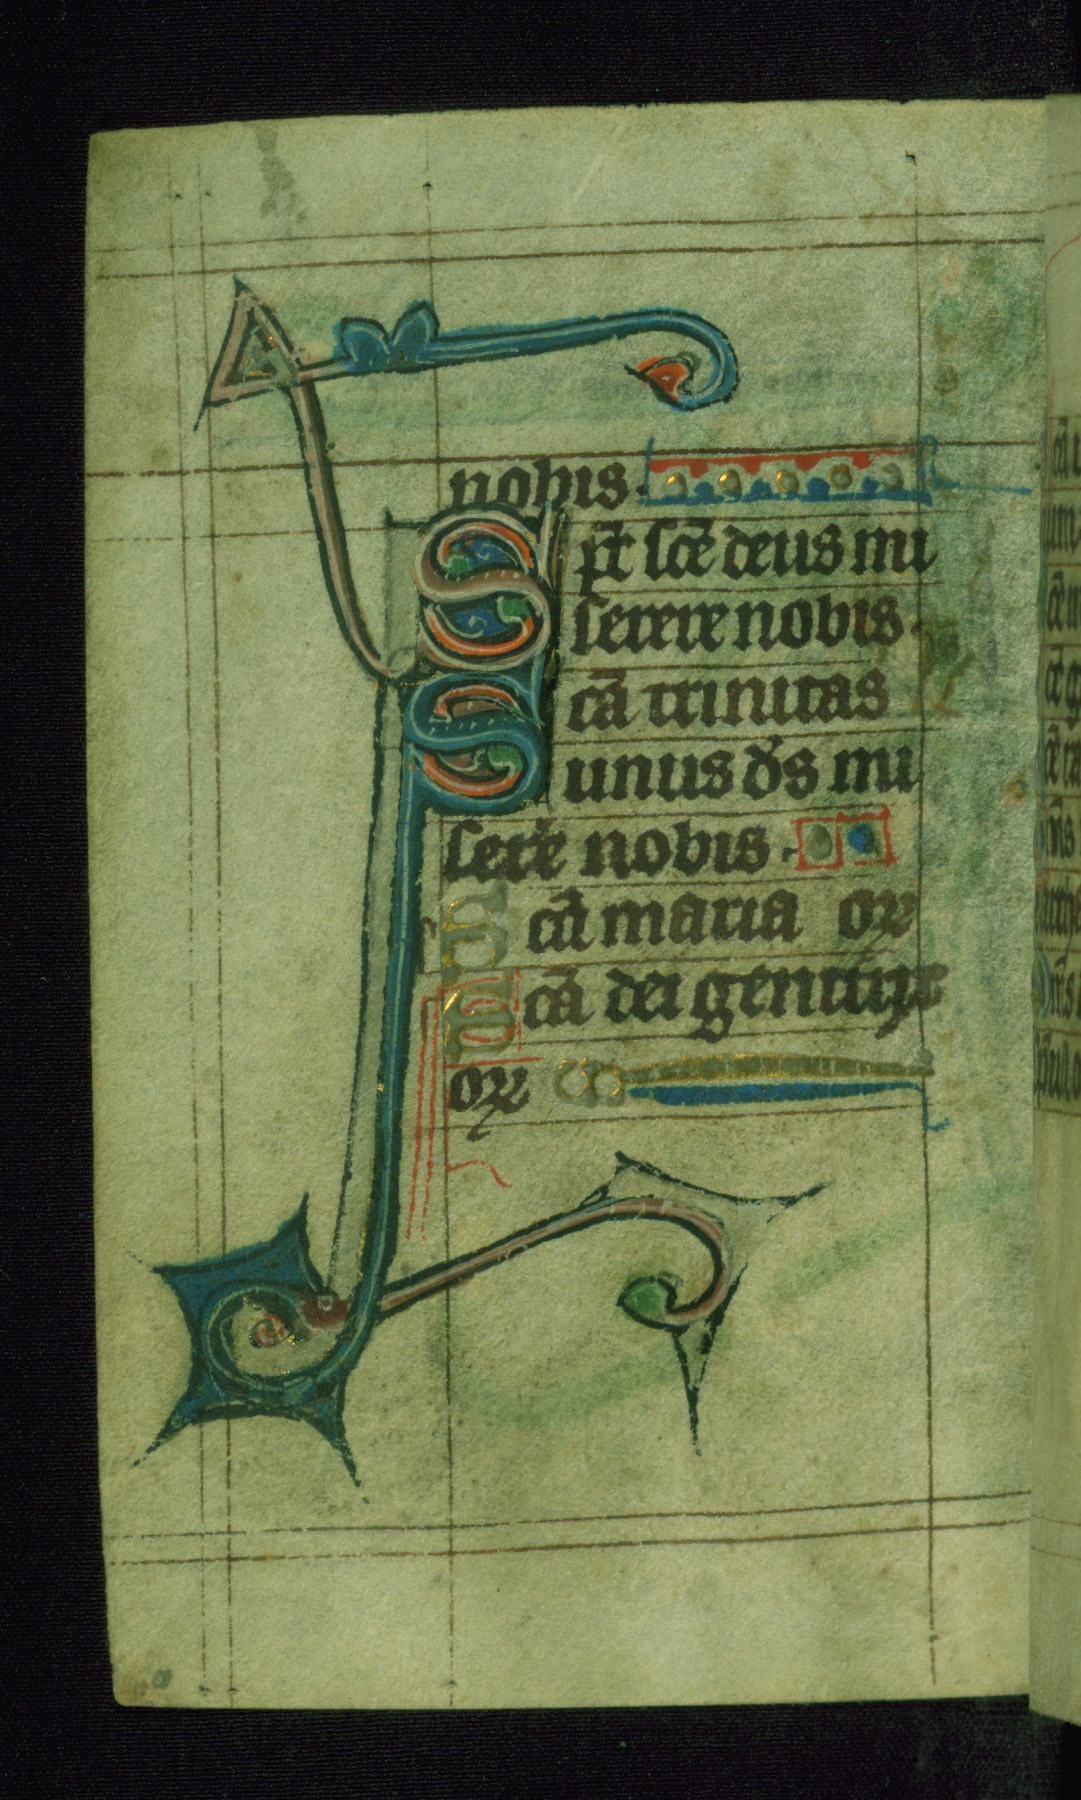 nobis.
Sp̄t sc̄e deus mi
serere nobis.
Sc̄a trinitas
unus ds̄ mi
sere̅ nobis.
Sc̄a maria or
Sc̄a dei genitrix
or